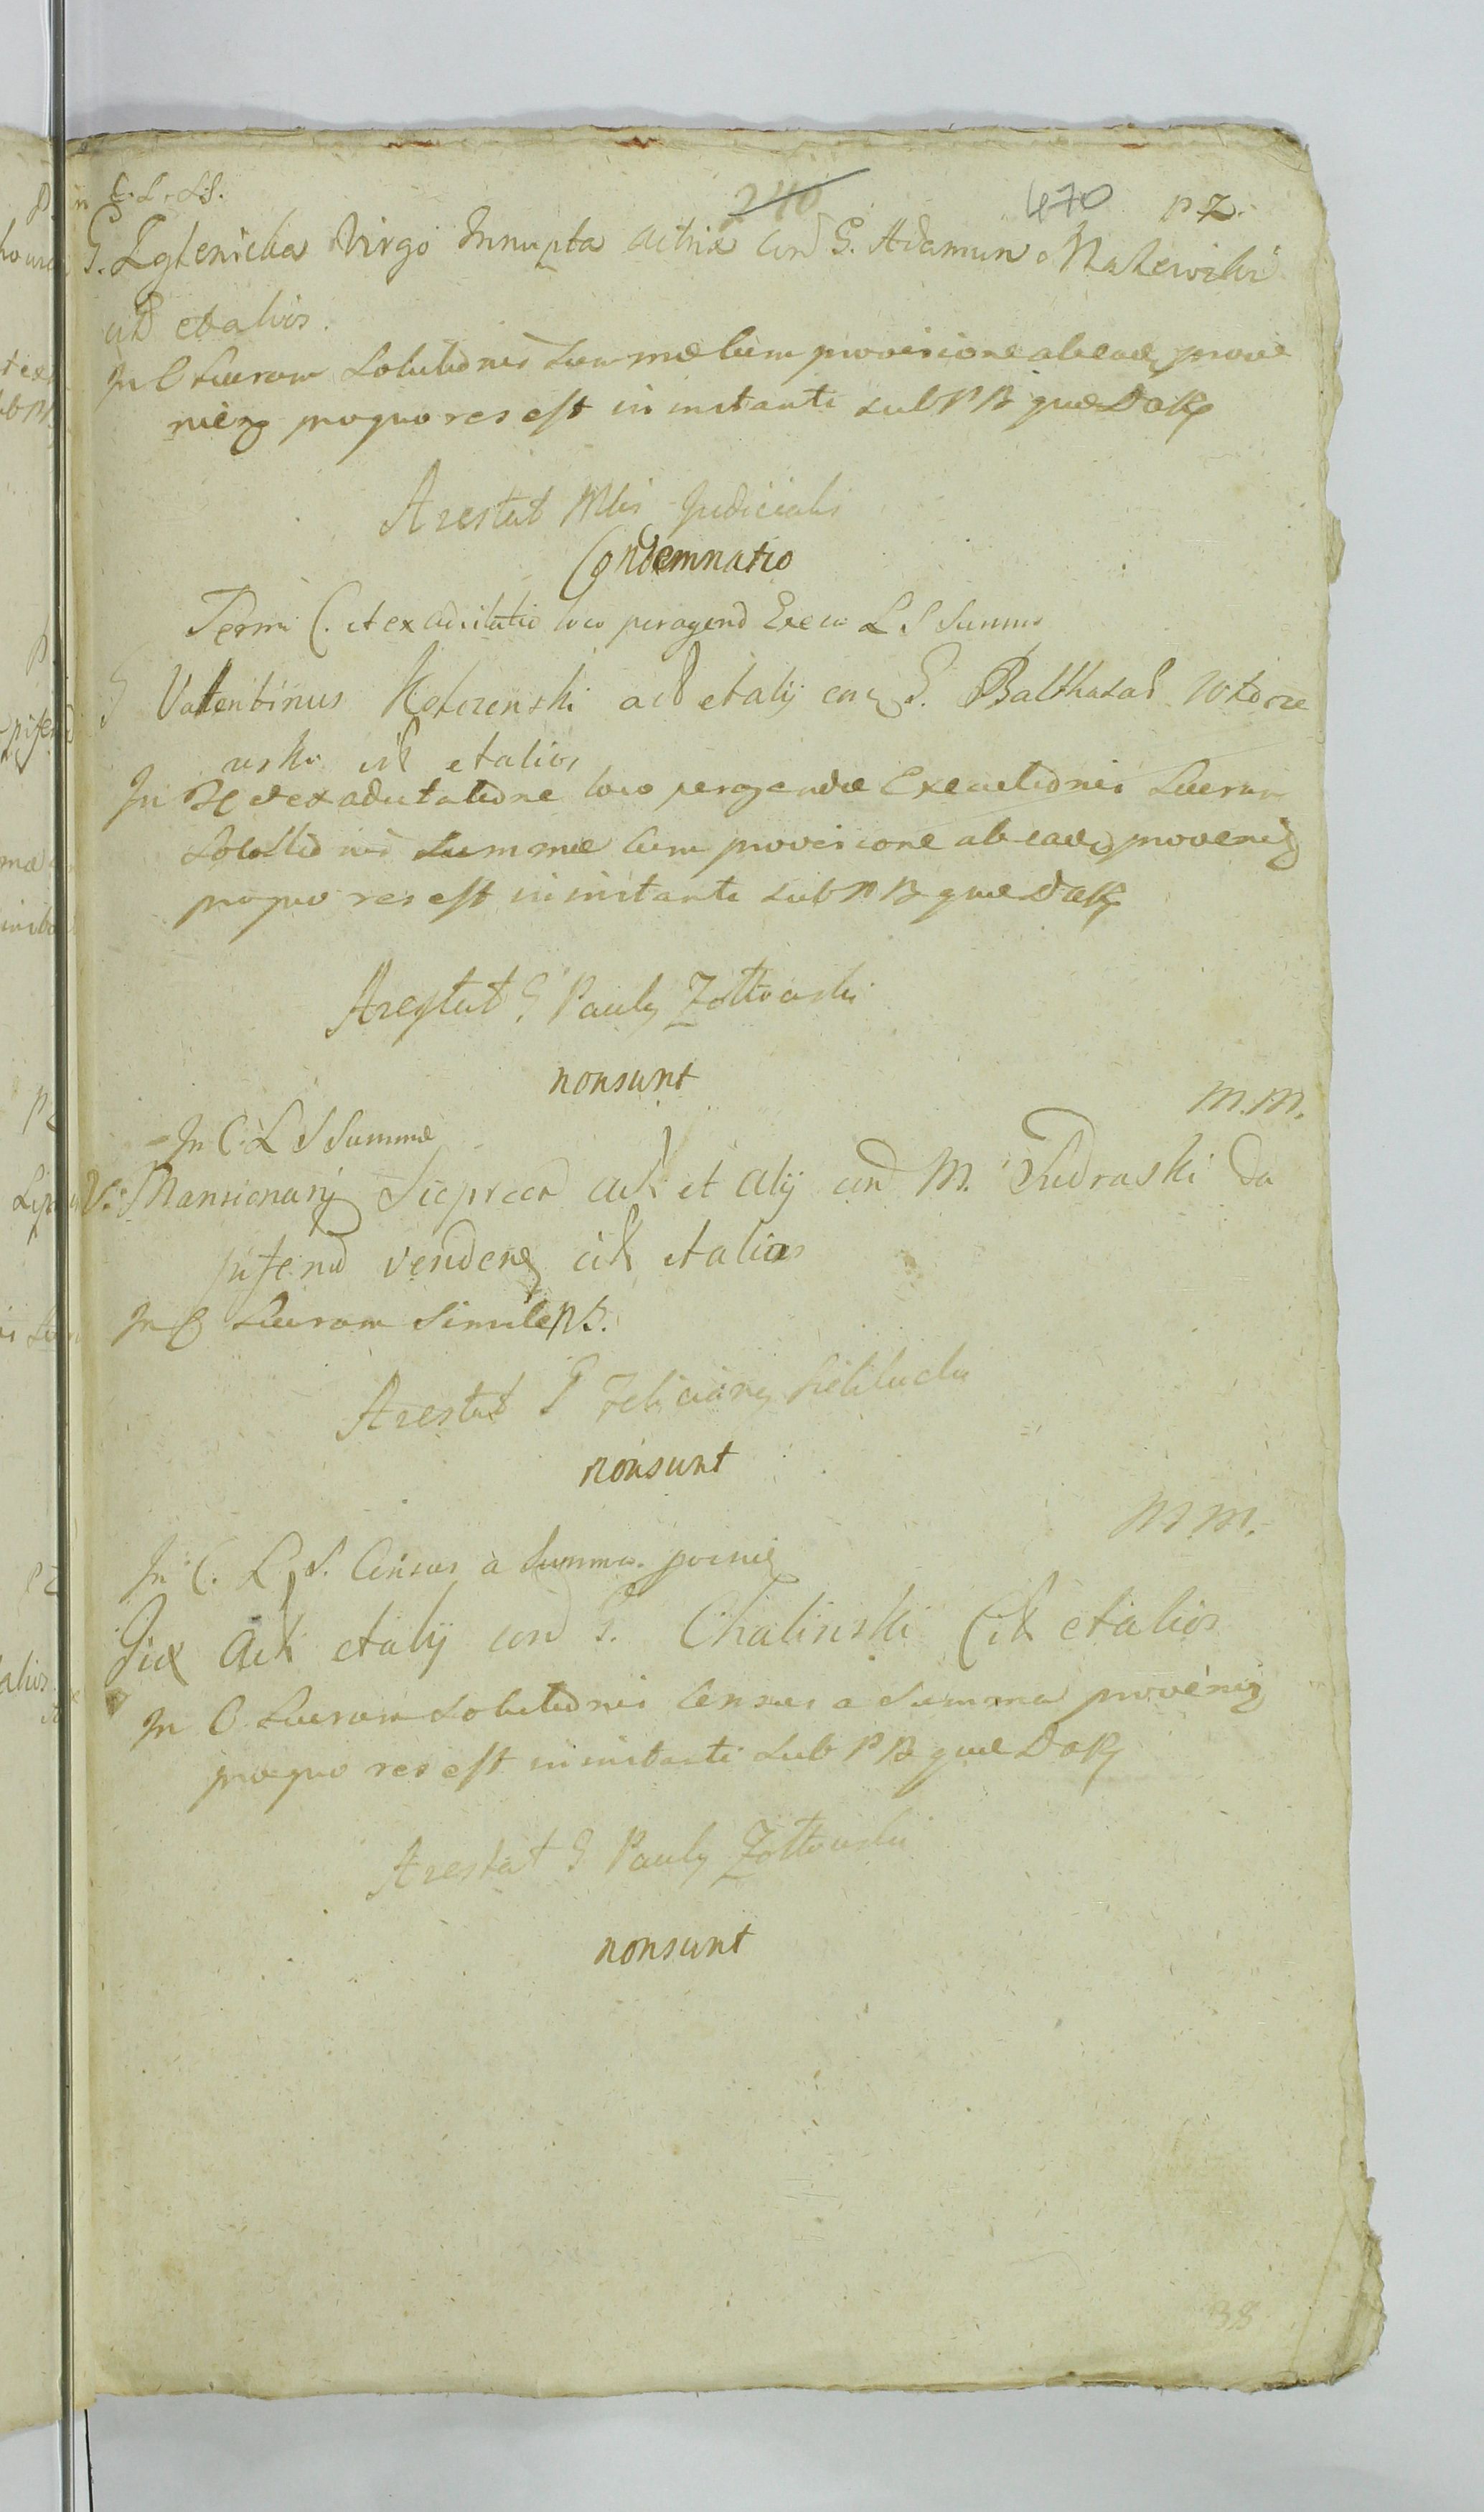 In C. L. L. S. 240 470 PZ.
G. Zglenicka Virgo Innupta actrix con G. Adamum Makowski
cit et alios.
In C Lucrum Solutionis Summae cum provisione ab eadq prove
nieq pro quo res est in instanti sub PB quae Do
Arestat Mtis Judicialis
Condemnatio
Term C. et ex adcitatio loco peragend Execu L S Summae
G Valentinus act et alij con G. Balthasar Wtorze
wski cit et alios
In et ex adcitatione loco peragendae Executionis Lucrum
Solutionis Summae cum provisione ab eadq provenieq
pro quo res est in instanti sub PB quae Do
Arestat G Paulq Zołtowski
non sunt
M.M.
In C. L S Summae
V. Mansionarij act et alij con M. Da
pifend venden cit et alios
In C Lucrum Simile PB.
Arestat G Felicianq
non sunt
M.M.
In C. L. S. Census à Summa provenieq
Iidē Act et alij con G. Chalinski Cit et alios
In C. Lucrum Solutionis Census a Summa provenieq
pro quo res est in instanti sub PB quae Do
Arestat G Paulq Zołtowski
non sunt
38